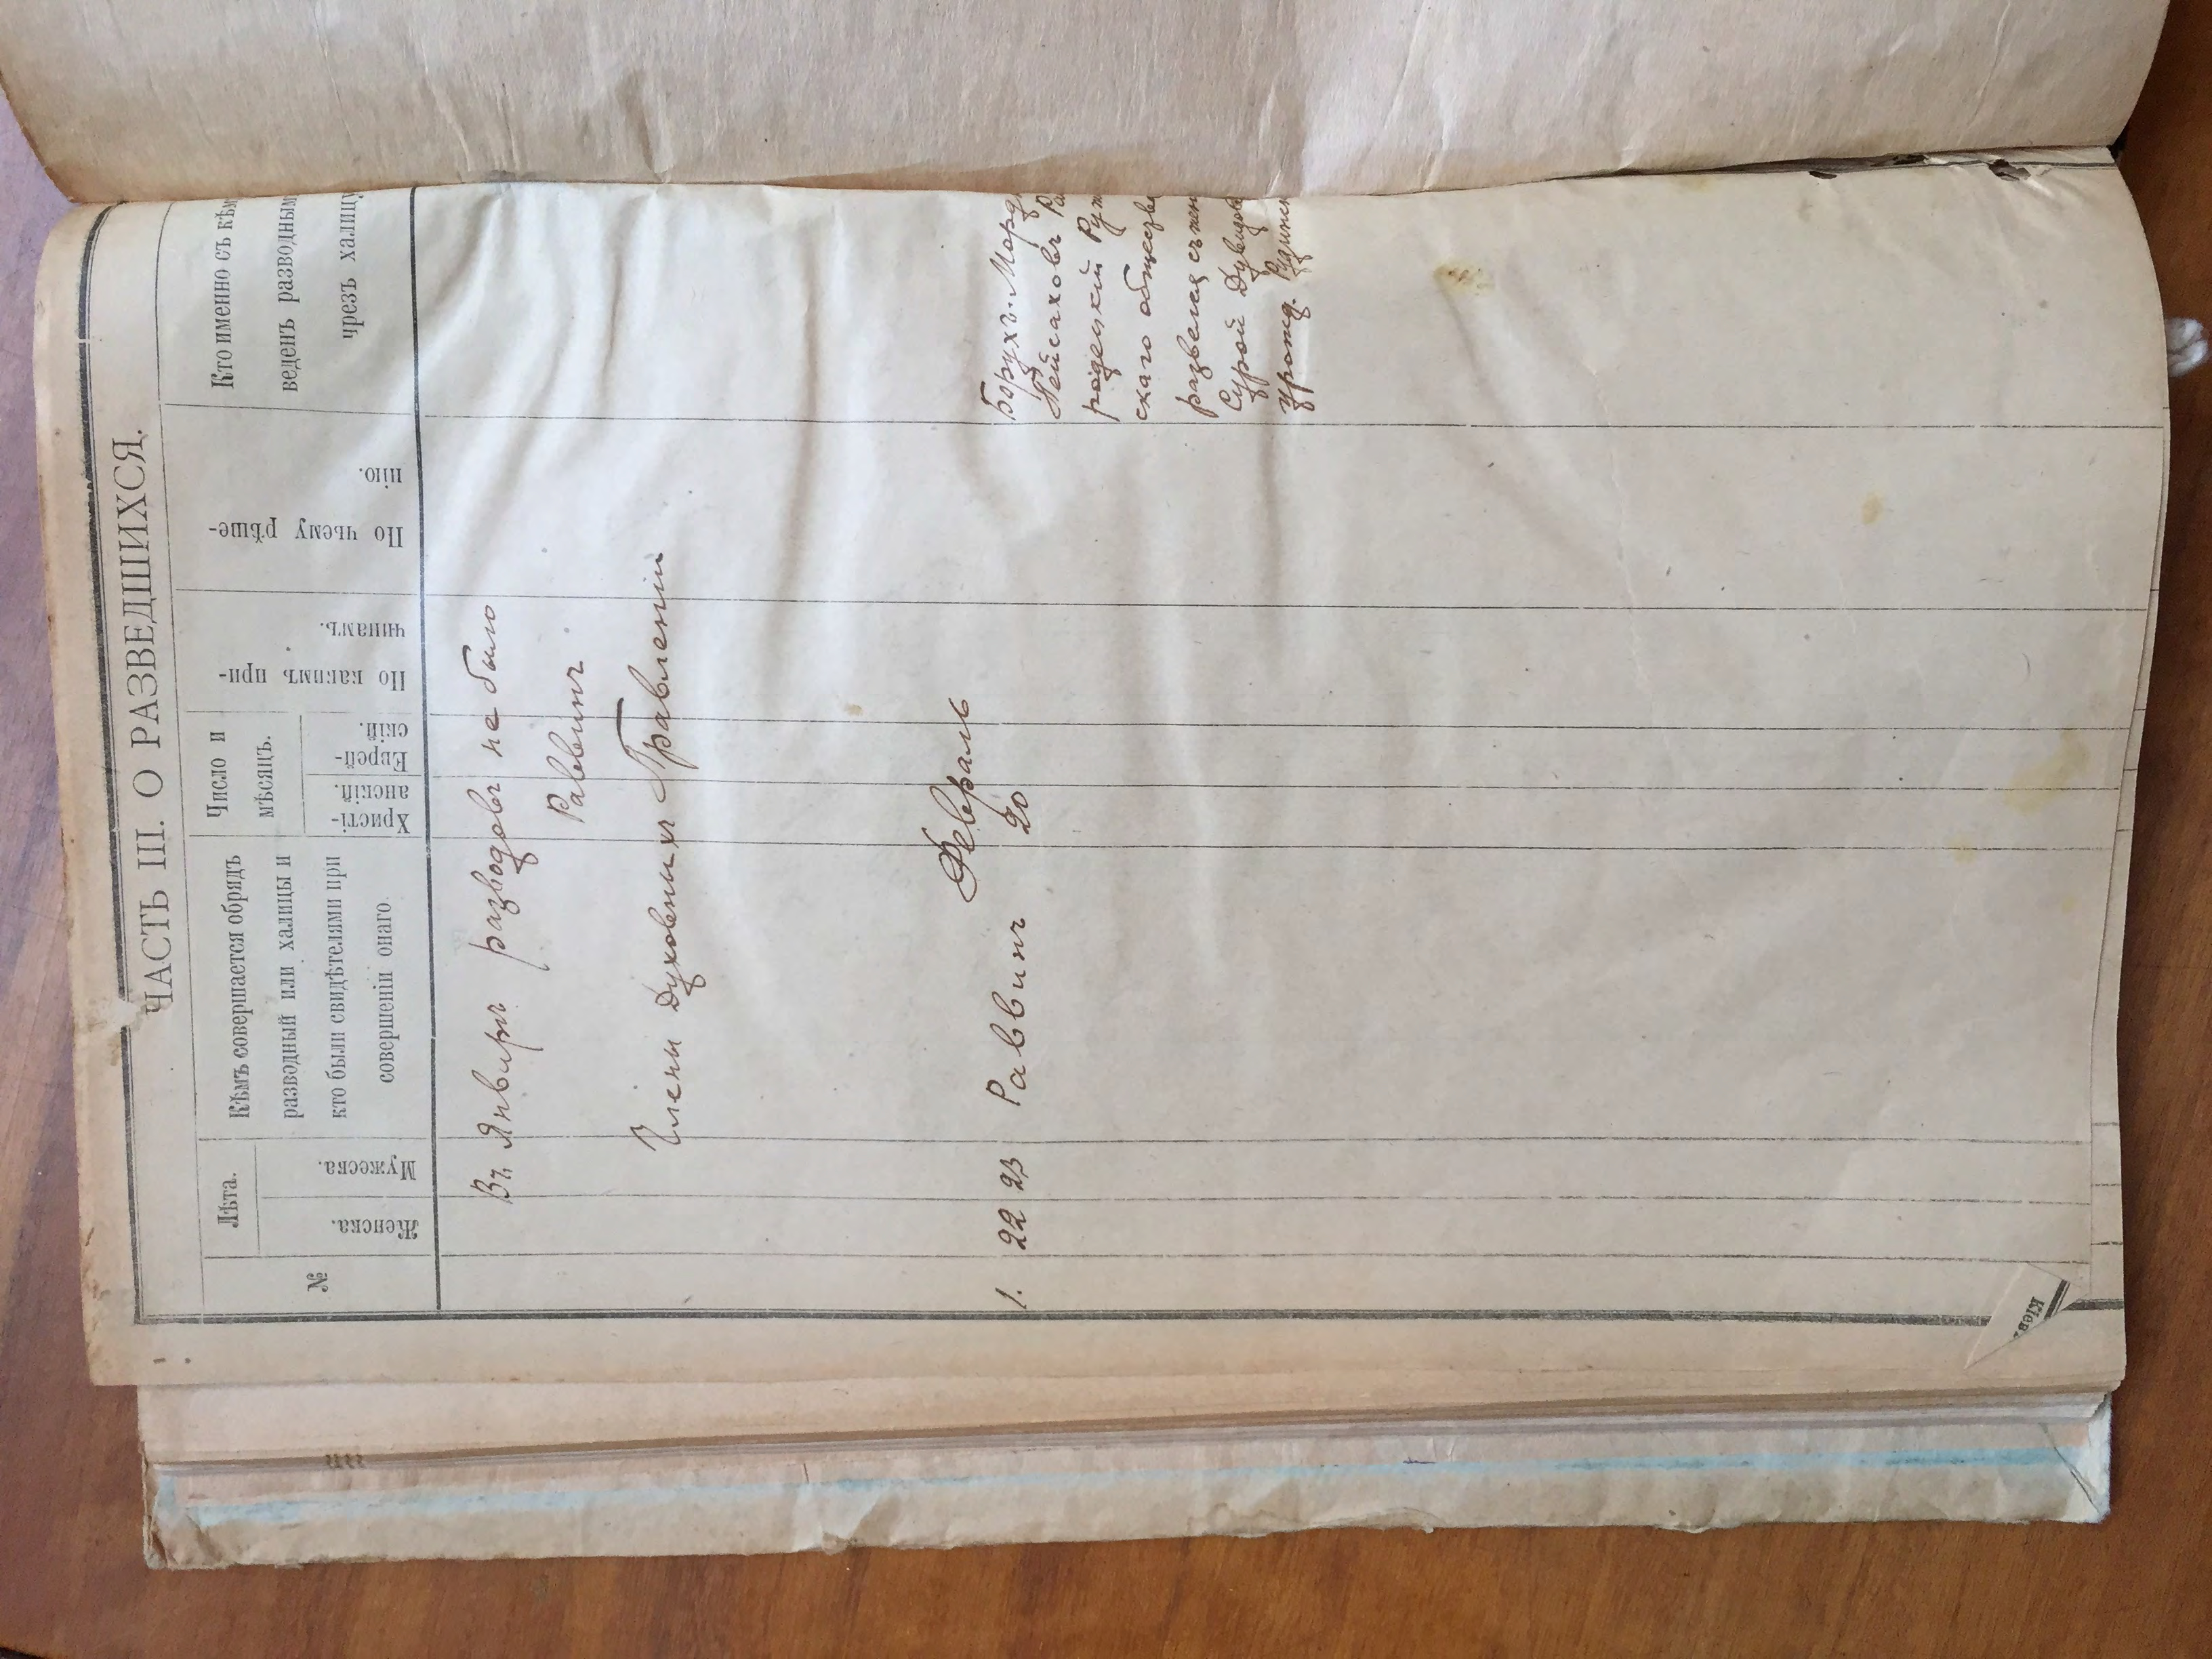 ЧАСТЬ III. О РАЗВЕДШИХСЯ.
№
Лѣта.
Женска.
Мужеска.
Кѣмъ совершается обрядъ
разводный или халицы и
кто были свидѣтелями при
совершеніи онаго.
Число и
мѣсяцъ.
Христі-
анскій.
Еврей-
скій.
По какимъ при-
чинамъ.
По чьему рѣше-
нію.
Кто именно съ кѣм
веденъ разводным
чрезъ халицу
Въ Январѣ разводовъ не было
Раввинъ
Члены Духовныхъ Правленіи
Февраль
1. 22 23 Раввинъ 20
Борухъ-Морд
Пейсаховъ Ра
родецкій Руж
скаго обществ
развелся съ жен
Сурой Дувидов
урожд.
Кіев